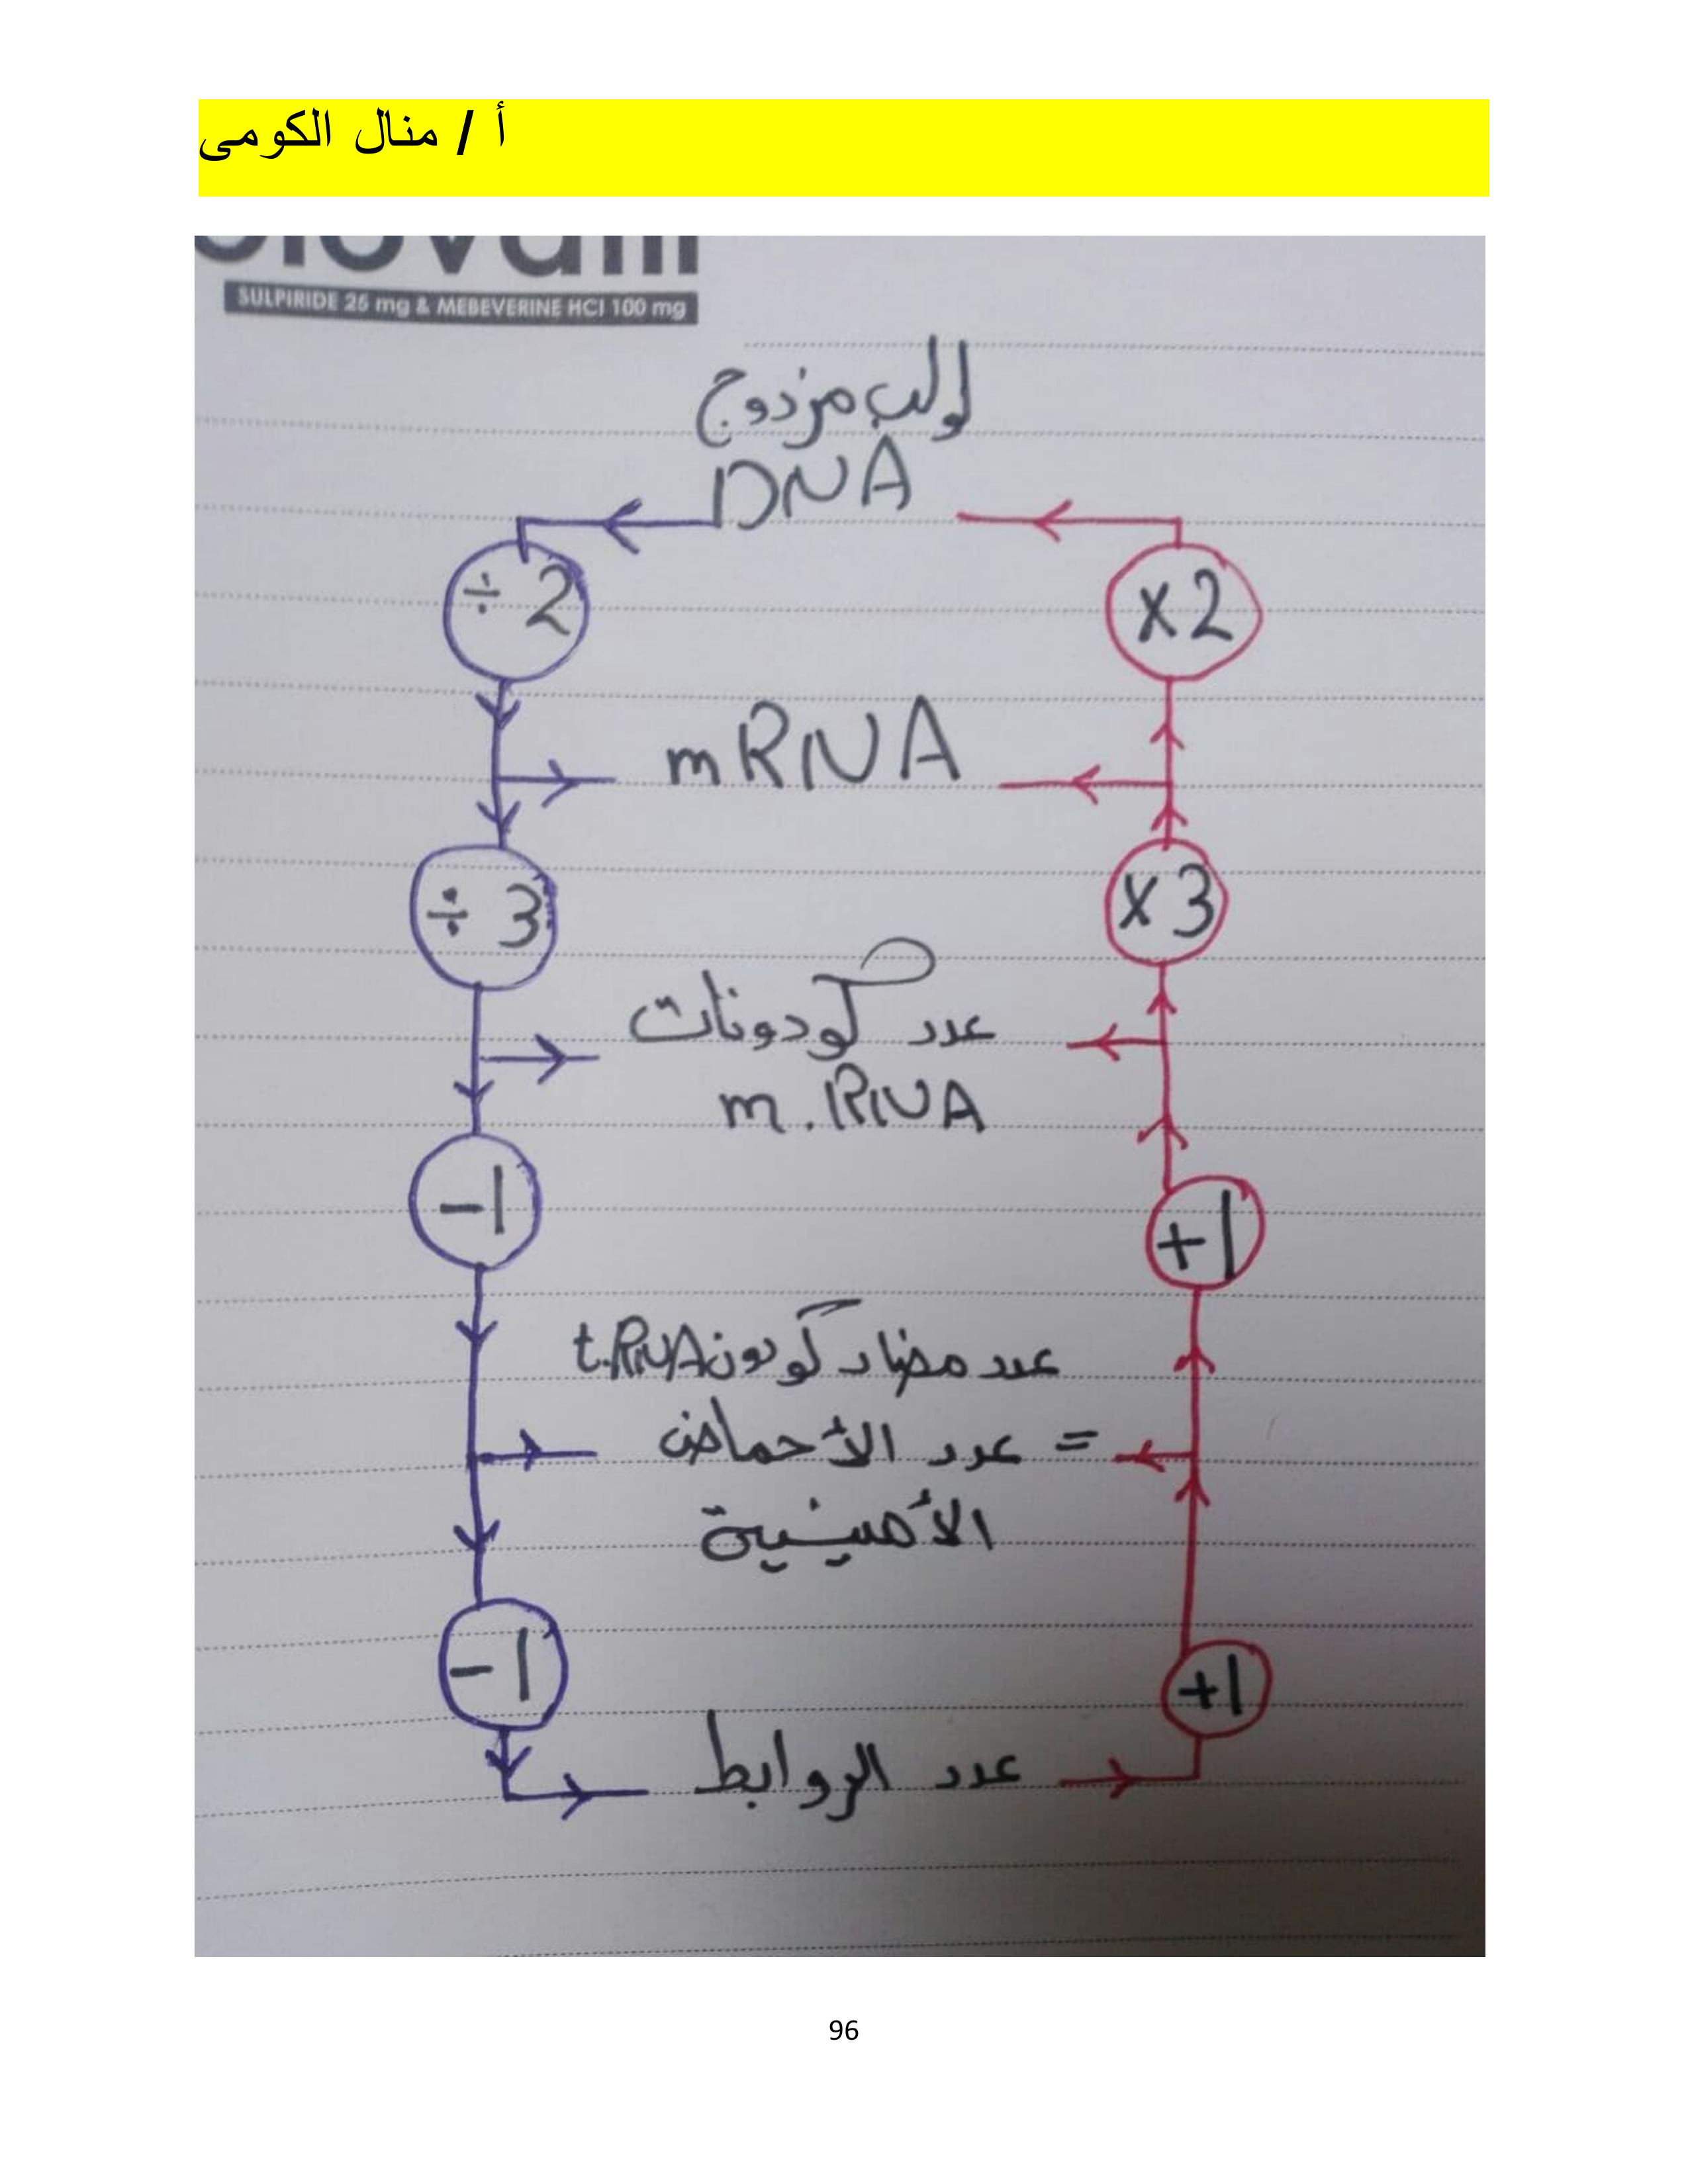 أ / منال الكومى
SULPIRIDE 25 mg & MEBEVERINE HCl 100 mg
لولب مزدوج
DNA
÷ 2
x2
mRNA
÷ 3
x3
عدد كودونات
m.RNA
-1
+1
عدد مضاد كودون t.RNA
= عدد الأحماض
الأمينية
-1
+1
عدد الروابط
96